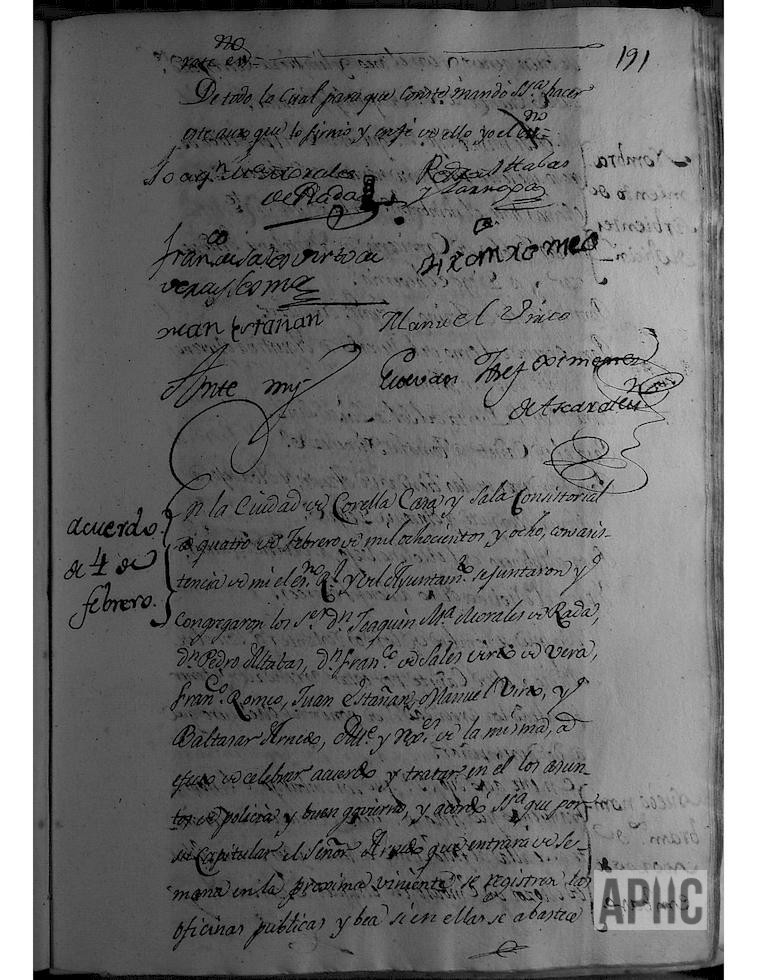 191
De todo lo Cual para que conste mandó Sª. hacer
este auto que lo firmó y en fe de ello yo el Essno=
Joaqn. Mª Morales
de Rada
Pedro Altabas
y Larropa
Franco de Sales Virto de
Vera y
Franco Romeo
Juan Estañan
Manuel Virto
Ante my
Estevan Jph Ximenez
de Ascarate
acuerdo
de 4 de
febrero.
En la Ciudad de Corella Casa y Sala Consistorial
a quatro de Febrero de mil ochocientos y ocho, con asis-
tencia de mi el esno. Rl. y del Ayuntamto. se juntaron y
congregaron los Sres. Dn. Joaquin Mª Morales de Rada,
Dn. Pedro Altabas, Dn. Franco. de Sales Virto de Vera,
Franco. Romeo, Juan Estañan, Manuel Virto, y
Baltasar Arnedo, Alle. y Rexes. de la misma, a
efecto de celebrar acuerdo y tratar en el los asun-
tos de policia y buen govierno, y acordó Sª. que por
su Capitular el Señor Arnedo que entrará de se-
mana en la proxima viniente se registren las
oficinas publicas y bea si en ellas se abastece
APHC